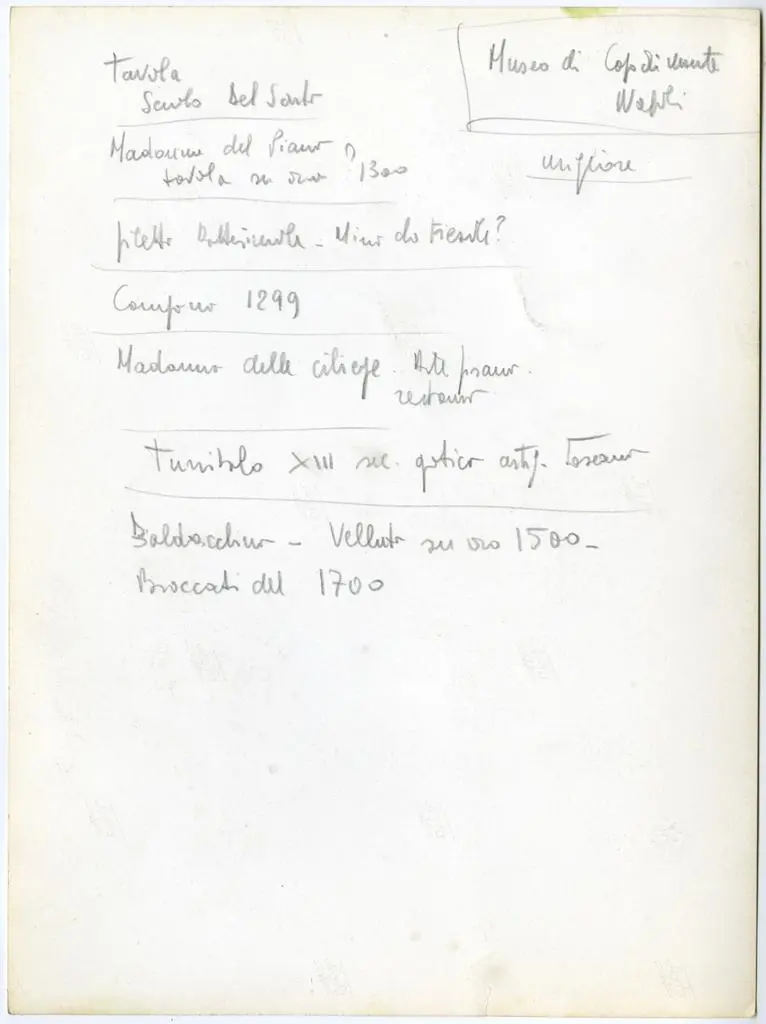 Tavola
Scuola Del Sarto
Museo di Capodimonte
Napoli
migliore
Madonna del Piano
tavola su oro 1300
Mino da Fiesole?
Campana 1299
Madonna delle ciliege. Arte pisana.
restauro
Turribolo XIII sec. gotico artig. Toscano
Baldacchino - Velluto su oro 1500 -
Broccati del 1700